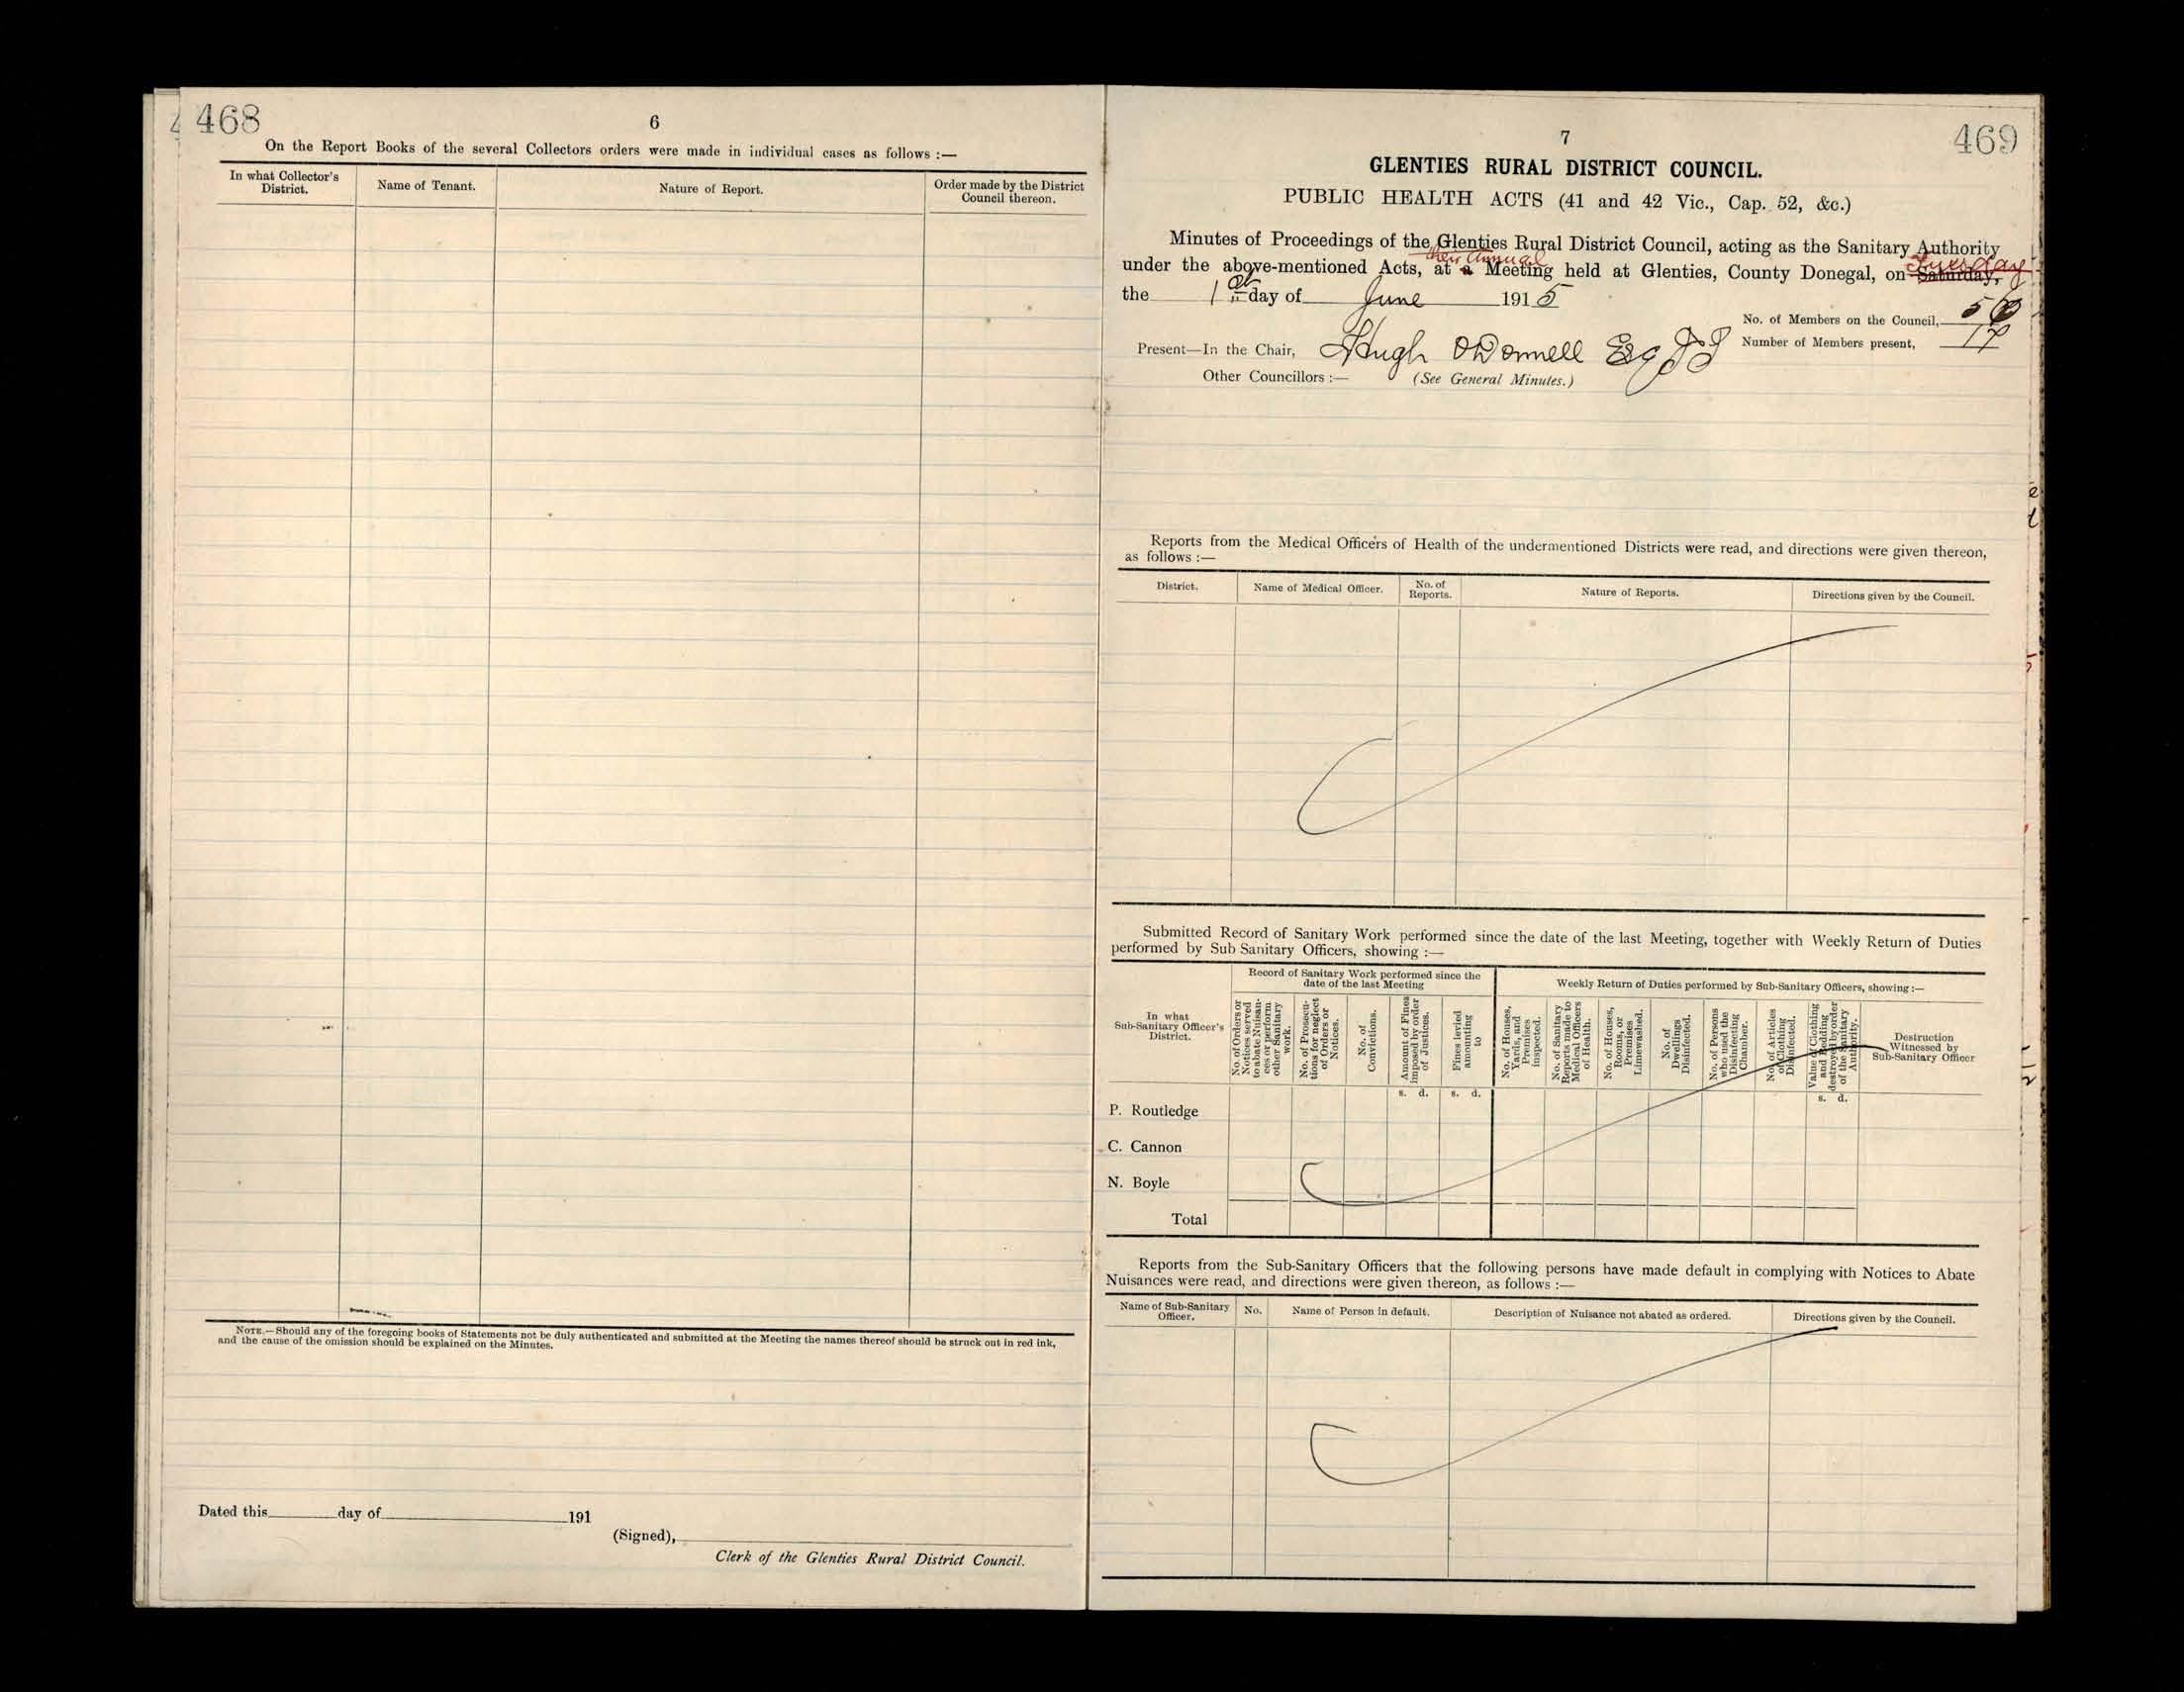 468
6
On the Report Books of the several Collectors orders were made in individual cases as follows :—
In what Collector's District.
Name of Tenant.
Nature of Report.
Order made by the District Council thereon.
NOTE.—Should any of the foregoing books of Statements not be duly authenticated and submitted at the Meeting the names thereof should be struck out in red ink,
and the cause of the omission should be explained on the Minutes.
Dated this day of 191
(Signed),
Clerk of the Glenties Rural District Council.
469
7
GLENTIES RURAL DISTRICT COUNCIL.
PUBLIC HEALTH ACTS (41 and 42 Vic., Cap. 52, &c.)
Minutes of Proceedings of the Glenties Rural District Council, acting as the Sanitary Authority
their Annual
Tuesday
under the above-mentioned Acts, at a Meeting held at Glenties, County Donegal, on Saturday,
the 1st day of June 1915
No. of Members on the Council,
Present—In the Chair, Hugh O'Donnell Esq JP
Number of Members present,
Other Councillors :— (See General Minutes.)
Reports from the Medical Officers of Health of the undermentioned Districts were read, and directions were given thereon,
as follows :—
District.
Name of Medical Officer.
No. of Reports.
Nature of Reports.
Directions given by the Council.
Submitted Record of Sanitary Work performed since the date of the last Meeting, together with Weekly Return of Duties
performed by Sub Sanitary Officers, showing :—
Record of Sanitary Work performed since the date of the last Meeting
Weekly Return of Duties performed by Sub-Sanitary Officers, showing :—
In what Sub-Sanitary Officer's District.
No. of Orders or Notices served to abate Nuisances or perform other Sanitary work.
No. of Prosecutions for neglect of Orders or Notices.
No. of Convictions.
Amount of Fines imposed by order of Justices.
Fines levied amounting to
No. of Houses, Yards, and Premises inspected.
No. of Sanitary Reports made to Medical Officers of Health.
No. of Houses, Rooms, or Premises Limewashed.
No. of Dwellings Disinfected.
No. of Persons who used the Disinfecting Chamber.
No. of Articles of Clothing Disinfected.
Value of Clothing and Bedding destroyed by order of the Sanitary Authority.
Destruction Witnessed by Sub-Sanitary Officer
s. d. s. d. s. d.
P. Routledge
C. Cannon
N. Boyle
Total
Reports from the Sub-Sanitary Officers that the following persons have made default in complying with Notices to Abate
Nuisances were read, and directions were given thereon, as follows :—
Name of Sub-Sanitary Officer.
No.
Name of Person in default.
Description of Nuisance not abated as ordered.
Directions given by the Council.